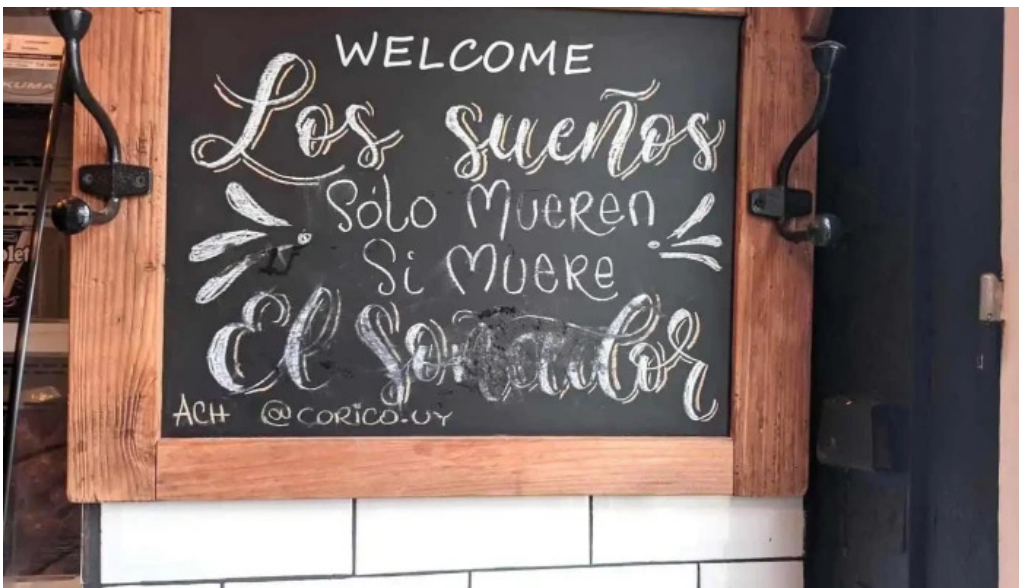 WELCOME
Los sueños
Sólo Mueren
Si Muere
El Soñador
ACH @CORICO.UY
KUMA